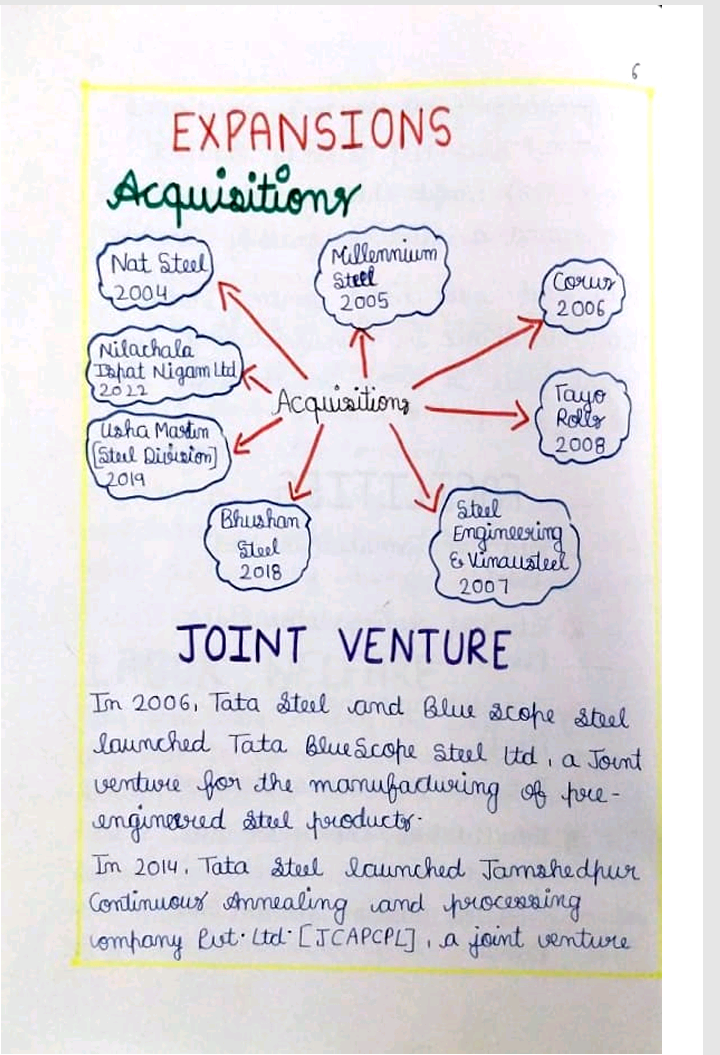 6
EXPANSIONS
Acquisitions
Nat Steel
2004
Millennium
Steel
2005
Corus
2006
Nilachala
Ispat Nigam Ltd
2022
Acquisitions
Tayo
Rolls
2008
Usha Martin
[Steel Division]
2019
Bhushan
Steel
2018
Steel
Engineering
& Vinausteel
2007
JOINT VENTURE
In 2006, Tata Steel and Blue Scope Steel
launched Tata BlueScope Steel Ltd, a Joint
venture for the manufacturing of pre-
engineered Steel products.
In 2014, Tata Steel launched Jamshedpur
Continuous Annealing and processing
company Pvt. Ltd. [JCAPCPL], a joint venture